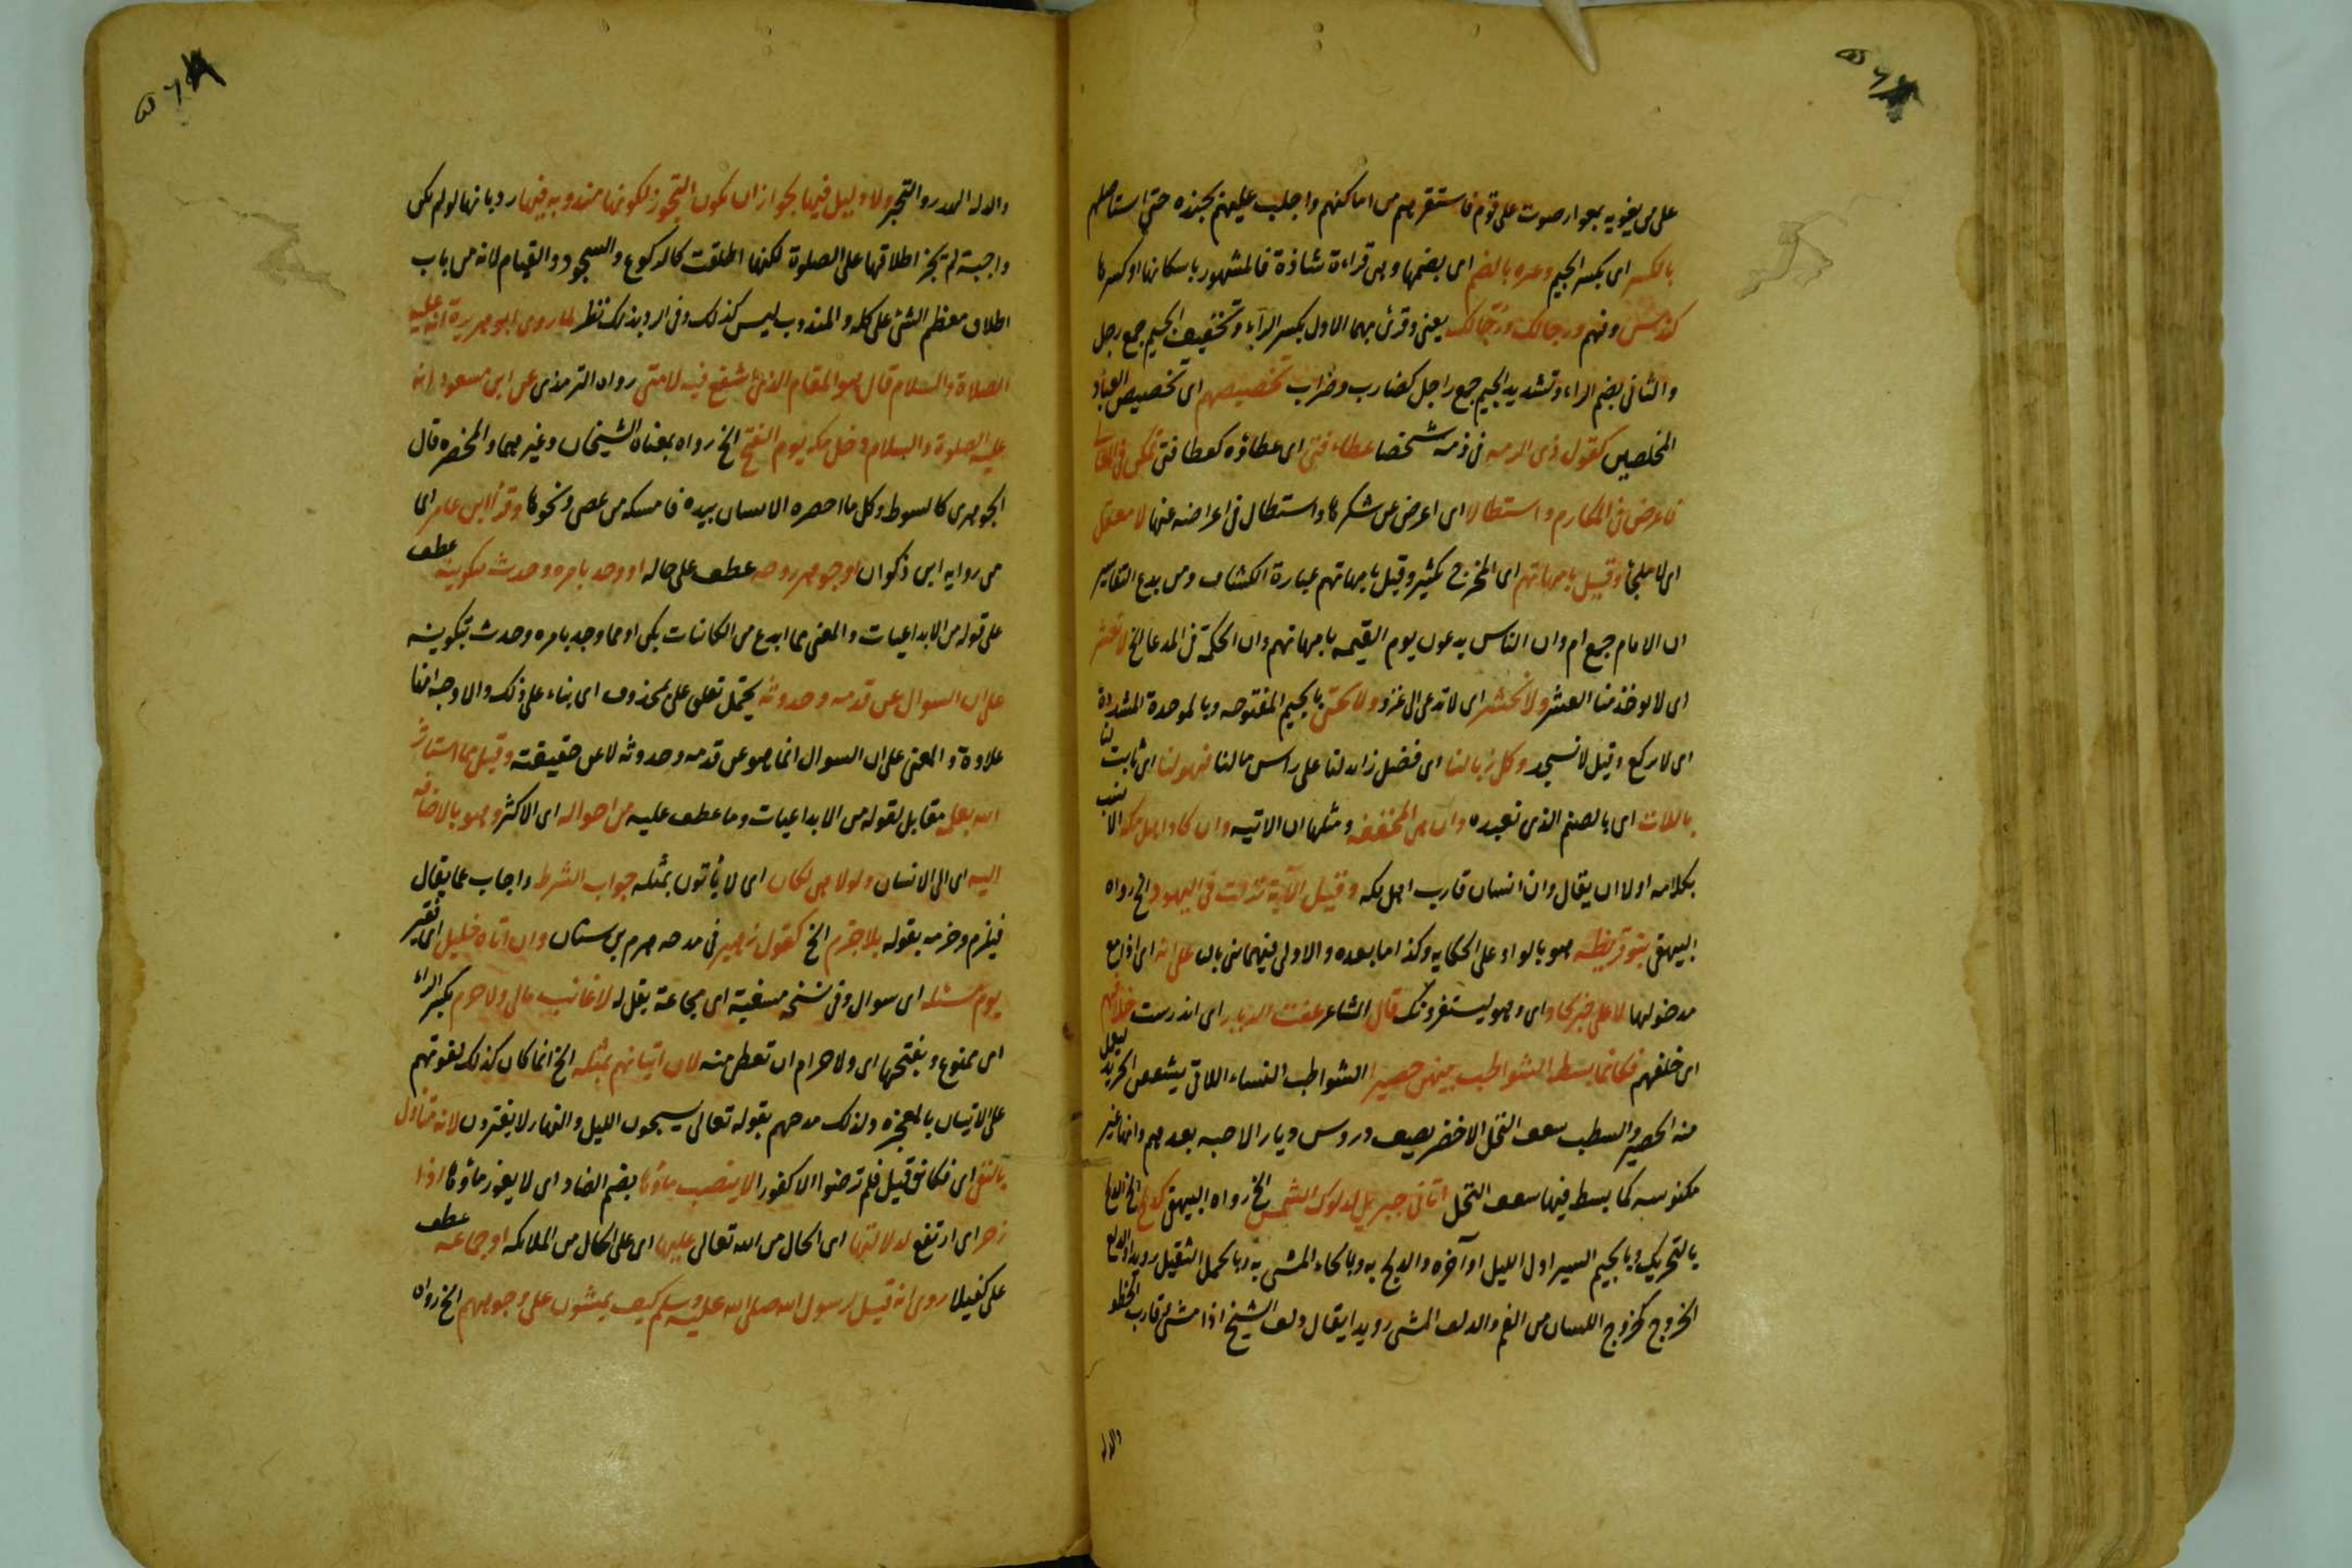 على من يغويه بمعوار صوت على قوم فاستفزهم من اماكنهم واجلب عليهم بجنده حتى استاصلهم
بالكسر اى بكسر الجيم وغيره بالضم اى بضمها وهى قراءة شاذة فالمشهور باسكانها او كسرها
كندس ونهم ورجالك ورجالك يعنى وقرئ بهما الاول بكسر الراء وتخفيف الجيم جمع رجل
والثانى بضم الراء وتشديد الجيم جمع راجل كضارب وضراب تخصيصهم اى تخصيص العباد
المخلصين كقول ذى الرمه فى ذمه شخصا عطاء فتى اى عطاؤه كعطا فتى تمكن فى المعالى
فاعرض فى المكارم واستطالا اى اعرض عن شكرها واستطال فى اعراضه عنها لا معقل
اى لا ملجئ وقيل بامهاتهم اى المخرج كثير وقيل بامهاتهم عبارة الكشاف ومن بدع التفاسير
ان الامام جمع ام وان الناس يدعون يوم القيمه بامهاتهم وان الحكمة فى الدعا الخ لا نعشر
اى لا يوخذ منا العشر ولا نحشر اى لا ندعى الى غزو ولا نجبى بالجيم المفتوحه وبالموحدة المشددة
اى لا نركع وقيل لا نسجد وكل ربا لنا اى فضل زائد لنا على راس مالنا فهو لنا اى ثابت لنا
باللات اى بالصنم الذى نعبده وان هى المخففه ومثلها ان الاتيه وان كاد اهل مكه الانسب
بكلامه اولا ان يقال وان انسان قارب اهل مكه وقيل الآية نزلت فى اليهود الخ رواه
البيهقى بنو قريظه هو بالواو على الحكايه وكذا ما بعده والاولى فيهما بنى بالى على انه اى اذا مع
مدخولها لا على خبر كاد اى وهو ليستفزونك قال الشاعر عفت الديار اى اندرست خلافهم
اى خلفهم فكانما بسط الشواطب بينهن حصيرا الشواطب النساء اللاتى يشققن الجريد ليعمل
منه الحصير والشطب سعف النخل الاخضر يصف دروس ديار الاحبه بعدهم وانها غير
مكنوسه كما بسط فيها سعف النخل اتانى جبريل لدلوك الشمس الخ رواه البيهقى كدلج الخ الدلج
بالتحريك وبالجيم السير اول الليل او آخره والدلح به وبالحاء المشى به وبالحمل الثقيل رويدا والدلع
الخروج كخروج اللسان من الفم والدلف المشى رويدا يقال دلف الشيخ اذا مشى وقارب الخطو
والدله
والدله التحير ولا دليل فيها لجواز ان يكون التجوز لكونها مندوبه فيها رد بانها لو لم تكن
واجبة لم يجز اطلاقها على الصلوة لكنها اطلقت كالركوع والسجود والقيام لانه من باب
اطلاق معظم الشئ على كله والمندوب ليس كذلك وفى الرد بذلك نظر لما روى ابو هريرة انه عليه
الصلاة والسلام قال هو المقام الذى اشفع فيه لامتى رواه الترمذى عن ابن مسعود انه
عليه الصلوة والسلام دخل مكه يوم الفتح الخ رواه بمعناه الشيخان وغيرهما والمخصره قال
الجوهرى كالسوط وكل ما احصره الانسان بيده فامسكه من عصى ونحوها وقرا ابن عامر اى
من روايه ابن ذكوان او جوهر روحه عطف على حاله او وجد بامره وحدث بتكوينه عطف
على قوله من الابداعيات والمعنى مما ابدع من الكائنات بكن او مما وجد بامره وحدث بتكوينه
على ان السوال عن قدمه وحدوثه يحتمل تعلق على بمحذوف اى بناء على ذلك والاوجه انها
علاوة والمعنى على ان السوال انما هو عن قدمه وحدوثه لا عن حقيقته وقيل مما استاثر
الله بعلمه مقابل لقوله من الابداعيات وما عطف عليه من احواله اى الاكثر وهو بالاضافه
اليه اى الى الانسان ولولا هى لكان اى لا ياتون بمثله جواب الشرط واجاب عما يقال
فيلزم وجزمه بقوله بلا جزم الخ كقول زهير فى مدحه هرم بن سنان وان اتاه خليل اى فقير
يوم مسئله اى سوال وفى نسخه مسغبة اى مجاعة يقل له لا غائب مالى ولا حرم بكسر الراء
اى ممنوع وبفتحها اى ولا حرام ان تعطى منه لان اتيانهم بمثله الخ انما كان كذلك لقوتهم
على الاتيان بالمعجزه ولذلك مدحهم بقوله تعالى يسبحون الليل والنهار لا يفترون لانه متناول
بالنفى اى فكانه قيل فلم ترضوا الا كفورا لا ينضب ماؤها بضم الضاد اى لا يغور ماؤها اذا
زخر اى ارتفع لدلالتها اى الحال من الله تعالى عليها اى على الحال من الملائكه او جماعه عطف
على كفيلا روى انه قيل لرسول الله صلى الله عليه وسلم كيف يمشون على وجوههم الخ رواه